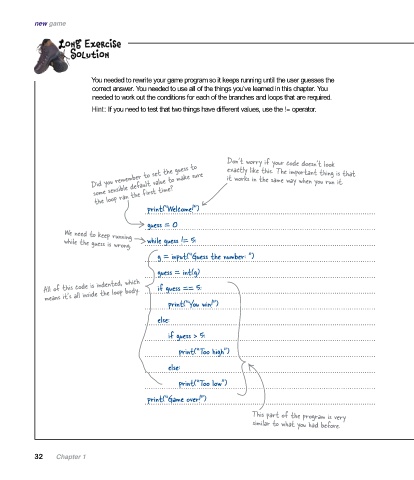 new game
Long Exercise
Solution
You needed to rewrite your game program so it keeps running until the user guesses the
correct answer. You needed to use all of the things you've learned in this chapter. You
needed to work out the conditions for each of the branches and loops that are required.
Hint: If you need to test that two things have different values, use the != operator.
Did you remember to set the guess to
some sensible default value to make sure
the loop ran the first time?
Don't worry if your code doesn't look
exactly like this. The important thing is that
it works in the same way when you run it.
print("Welcome!")
guess = 0
We need to keep running
while the guess is wrong.
while guess != 5:
g = input("Guess the number: ")
guess = int(g)
All of this code is indented, which
means it's all inside the loop body.
if guess == 5:
print("You win!")
else:
if guess > 5:
print("Too high")
else:
print("Too low")
print("Game over!")
This part of the program is very
similar to what you had before.
32 Chapter 1